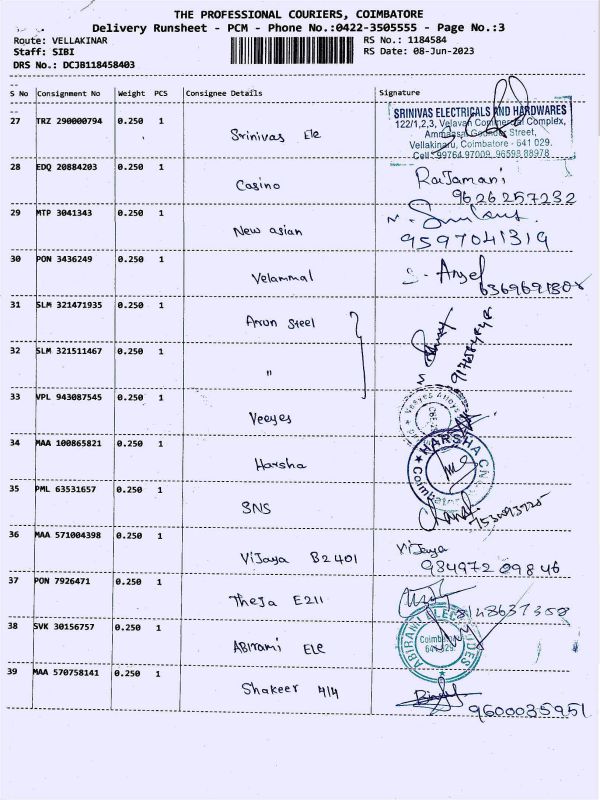 THE PROFESSIONAL COURIERS, COIMBATORE
Delivery Runsheet - PCM - Phone No.:0422-3505555 - Page No.:3
Route: VELLAKINAR RS No.: 1184584
Staff: SIBI RS Date: 08-Jun-2023
DRS No.: DCJB118458403
S No Consignment No Weight PCS Consignee Details Signature
27 TRZ 290000794 0.250 1 Srinivas Ele
SRINIVAS ELECTRICALS AND HARDWARES
122/1,2,3, Velavan Commercial Complex,
Ammasai Gounder Street,
Vellakinaru, Coimbatore - 641 029.
Cell : 99764 97009, 96598 88978
28 EDQ 20884203 0.250 1 Casino Rajamani
9626257232
29 MTP 3041343 0.250 1 New asian
9597041319
30 PON 3436249 0.250 1 Velammal
31 SLM 321471935 0.250 1 Arun Steel
32 SLM 321511467 0.250 1 "
33 VPL 943087545 0.250 1 Veeyes
Veeyes Alloys
34 MAA 100865821 0.250 1 Harsha
HARSHA CNC
Coimbatore
35 PML 63531657 0.250 1 SNS
36 MAA 571004398 0.250 1 Vijaya B2401 Vijaya
37 PON 7926471 0.250 1 Theja E211
8148637358
38 SVK 30156757 0.250 1 Abirami Ele
ABIRAMI ELECTRODES
641 029.
39 MAA 570758141 0.250 1 Shakeer 414
9600035951